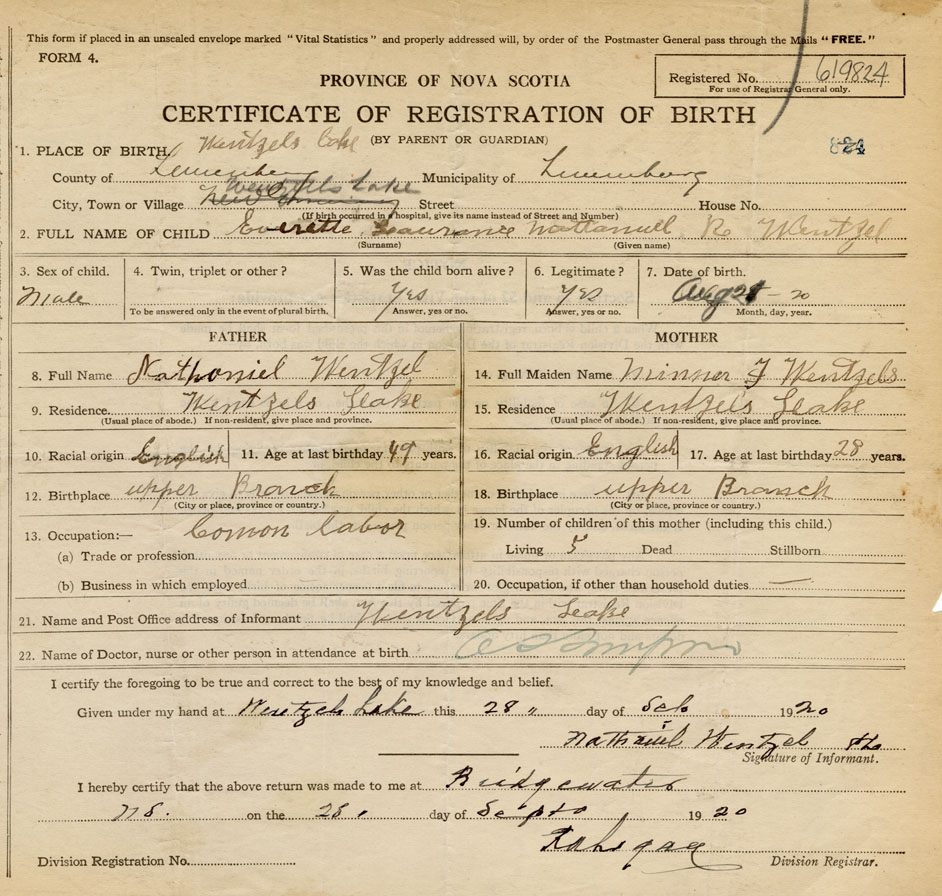 This form if placed in an unsealed envelope marked "Vital Statistics" and properly addressed will, by order of the Postmaster General pass through the Mails "FREE."
FORM 4.
PROVINCE OF NOVA SCOTIA
Registered No. 619824
For use of Registrar General only.
CERTIFICATE OF REGISTRATION OF BIRTH
(BY PARENT OR GUARDIAN)
1. PLACE OF BIRTH Wentzels Lake
County of Lunenburg Municipality of Lunenburg
City, Town or Village Wentzells Lake Street House No.
(If birth occurred in a hospital, give its name instead of Street and Number)
2. FULL NAME OF CHILD Everette Laurance Nattaniel R Wentzel
(Surname) (Given name)
3. Sex of child. 4. Twin, triplet or other? 5. Was the child born alive? 6. Legitimate? 7. Date of birth.
Male Yes Yes Aug 28 - 20
To be answered only in the event of plural birth. Answer, yes or no. Answer, yes or no. Month, day, year.
FATHER
8. Full Name Nathaniel Wentzel
9. Residence Wentzels Leake
(Usual place of abode.) If non-resident, give place and province.
10. Racial origin English 11. Age at last birthday 49 years.
12. Birthplace upper Branch
(City or place, province or country.)
13. Occupation:— Comon Labor
(a) Trade or profession
(b) Business in which employed
MOTHER
14. Full Maiden Name Minner J Wentzels
15. Residence Wentzels Leake
(Usual place of abode.) If non-resident, give place and province.
16. Racial origin English 17. Age at last birthday 28 years.
18. Birthplace upper Branch
(City or place, province or country.)
19. Number of children of this mother (including this child.)
Living 5 Dead Stillborn
20. Occupation, if other than household duties —
21. Name and Post Office address of Informant Wentzels Leake
22. Name of Doctor, nurse or other person in attendance at birth
I certify the foregoing to be true and correct to the best of my knowledge and belief.
Given under my hand at Wentzels Lake this 28 " day of Seb 1920
Nathaniel Wentzel
Signature of Informant.
I hereby certify that the above return was made to me at Bridgewater
NS. on the 28 day of Sept 1920
Division Registration No. Division Registrar.